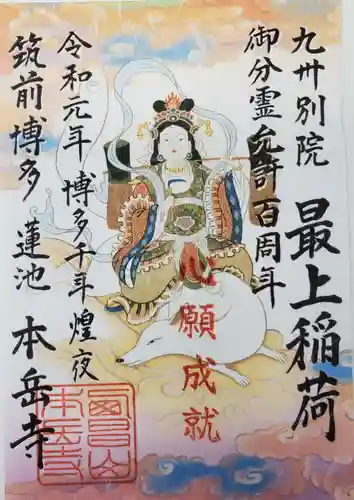 九州別院
最上稲荷
御分霊允許百周年
心願成就
令和元年 博多千年煌夜
筑前博多 蓮池 本岳寺